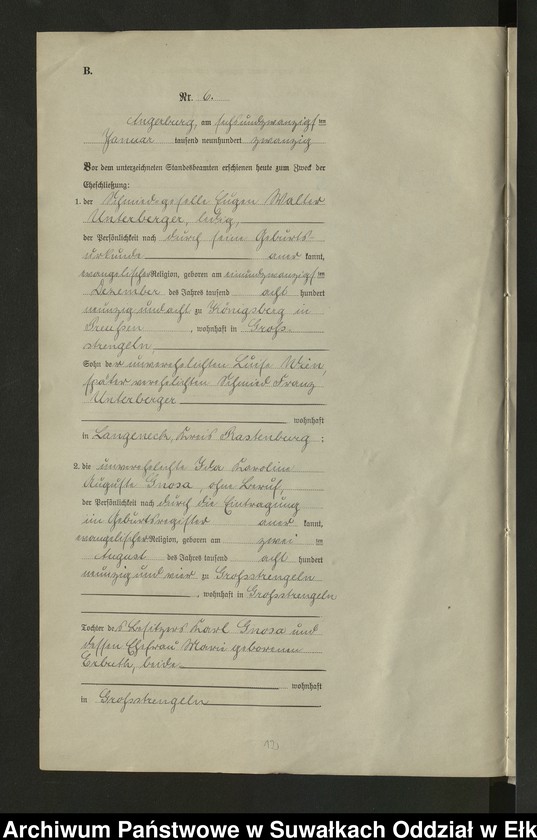 B.
Nr. 6.
Angerburg, am sechsundzwanzigsten
Januar tausend neunhundert zwanzig
Vor dem unterzeichneten Standesbeamten erschienen heute zum Zweck der
Eheschließung:
1. der Schmiedegeselle Eugen Walter
Unterberger, ledig,
der Persönlichkeit nach durch seine Geburts-
urkunde aner kannt,
evangelischer Religion, geboren am einundzwanzigsten
Dezember des Jahres tausend acht hundert
neunzig und acht zu Königsberg in
Preußen, wohnhaft in Groß-
strengeln,
Sohn der unverehelichten Luise Wien,
später verehelichten Schmied Franz
Unterberger
wohnhaft
in Langeneck, Kreis Rastenburg ;
2. die unverehelichte Ida Karoline
Auguste Gnosa, ohne Beruf,
der Persönlichkeit nach durch die Eintragung
im Geburtsregister aner kannt,
evangelischer Religion, geboren am zwei ten
August des Jahres tausend acht hundert
neunzig und vier zu Großstrengeln
, wohnhaft in Großstrengeln
Tochter des Besitzers Karl Gnosa und
dessen Ehefrau Marie geborenen
beide
wohnhaft
in Großstrengeln
Archiwum Państwowe w Suwałkach Oddział w Ełk